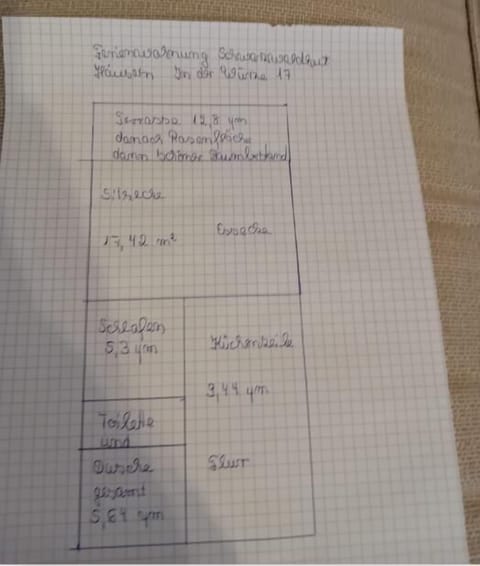 Ferienwohnung Schwarzwaldlust
Häusern In der Würze 17
Terrasse 12,8 qm
danach Rasenfläche
dann schöner Baumbestand
Sitzecke
17,42 m²
Essecke
Schlafen
5,3 qm
Küchenzeile
3,44 qm
Toilette
und
Dusche
gesamt
5,84 qm
Flur